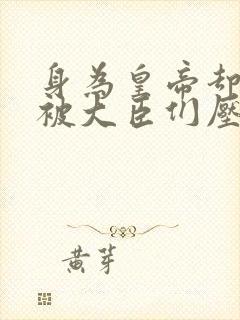 身為皇帝卻
被大臣們壓
黃芽